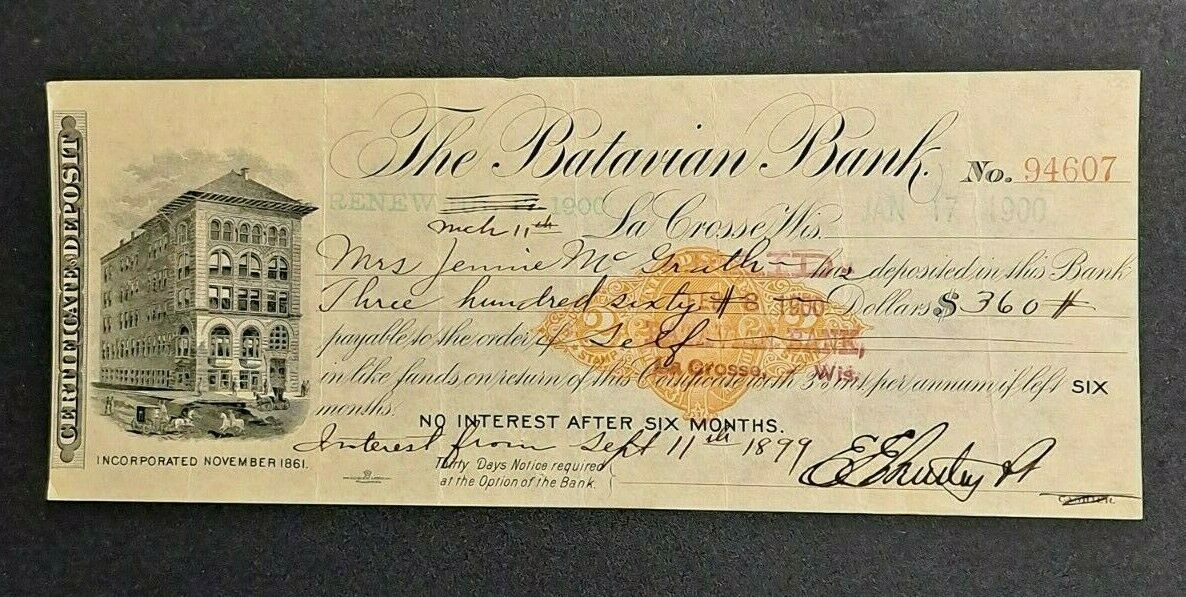 CERTIFICATE OF DEPOSIT
The Batavian Bank.
No. 94607
RENEW 1900
mch 11th
La Crosse, Wis. JAN 17 1900
Mrs Jennie McGrath has deposited in this Bank
Three hundred sixty # Dollars $ 360 #
8 1900
payable to the order of Self
BANK,
2 STAMP 2 STAMP
La Crosse, Wis.
in like funds, on return of this Certificate with 3 per annum if left SIX
months.
NO INTEREST AFTER SIX MONTHS.
Interest from Sept 11th 1899
INCORPORATED NOVEMBER 1861.
Thirty Days Notice required
at the Option of the Bank.